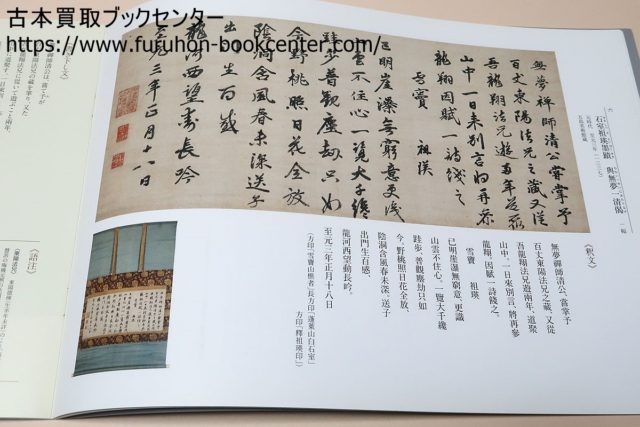 古本買取ブックセンター
https://www.furuhon-bookcenter.com/
六
石室祖瑛墨蹟 與無夢一清偈 一幅
五島美術館蔵
無夢禪師清公嘗掌予
百丈東陽法兄之藏又從
吾龍翔法兄遊兩年道聚
山中一日來別言將再參
龍翔因賦一詩餞之
雪竇 祖瑛
已明崖瀑無窮意更識
山雲不住心一覽大千纔
跬步普觀塵劫只如
今野桃照日花全放
陰洞含風春未深送子
出門生百感
龍河西望動長吟
至元三年正月十八日
《釈文》
無夢禪師清公、嘗掌予
百丈東陽法兄之藏、又從
吾龍翔法兄遊兩年、道聚
山中、一日來別言、將再參
龍翔、因賦一詩餞之、
雪竇 祖瑛
已明崖瀑無窮意、更識
山雲不住心、一覽大千纔
跬歩、普觀塵劫只如
今、野桃照日花全放、
陰洞含風春未深、送子
出門生百感、
龍河西望動長吟、
至元三年正月十八日
(方印「雪竇山樵者」長方印「蓬萊山白石室」
方印「釋祖瑛印」)
《語注》